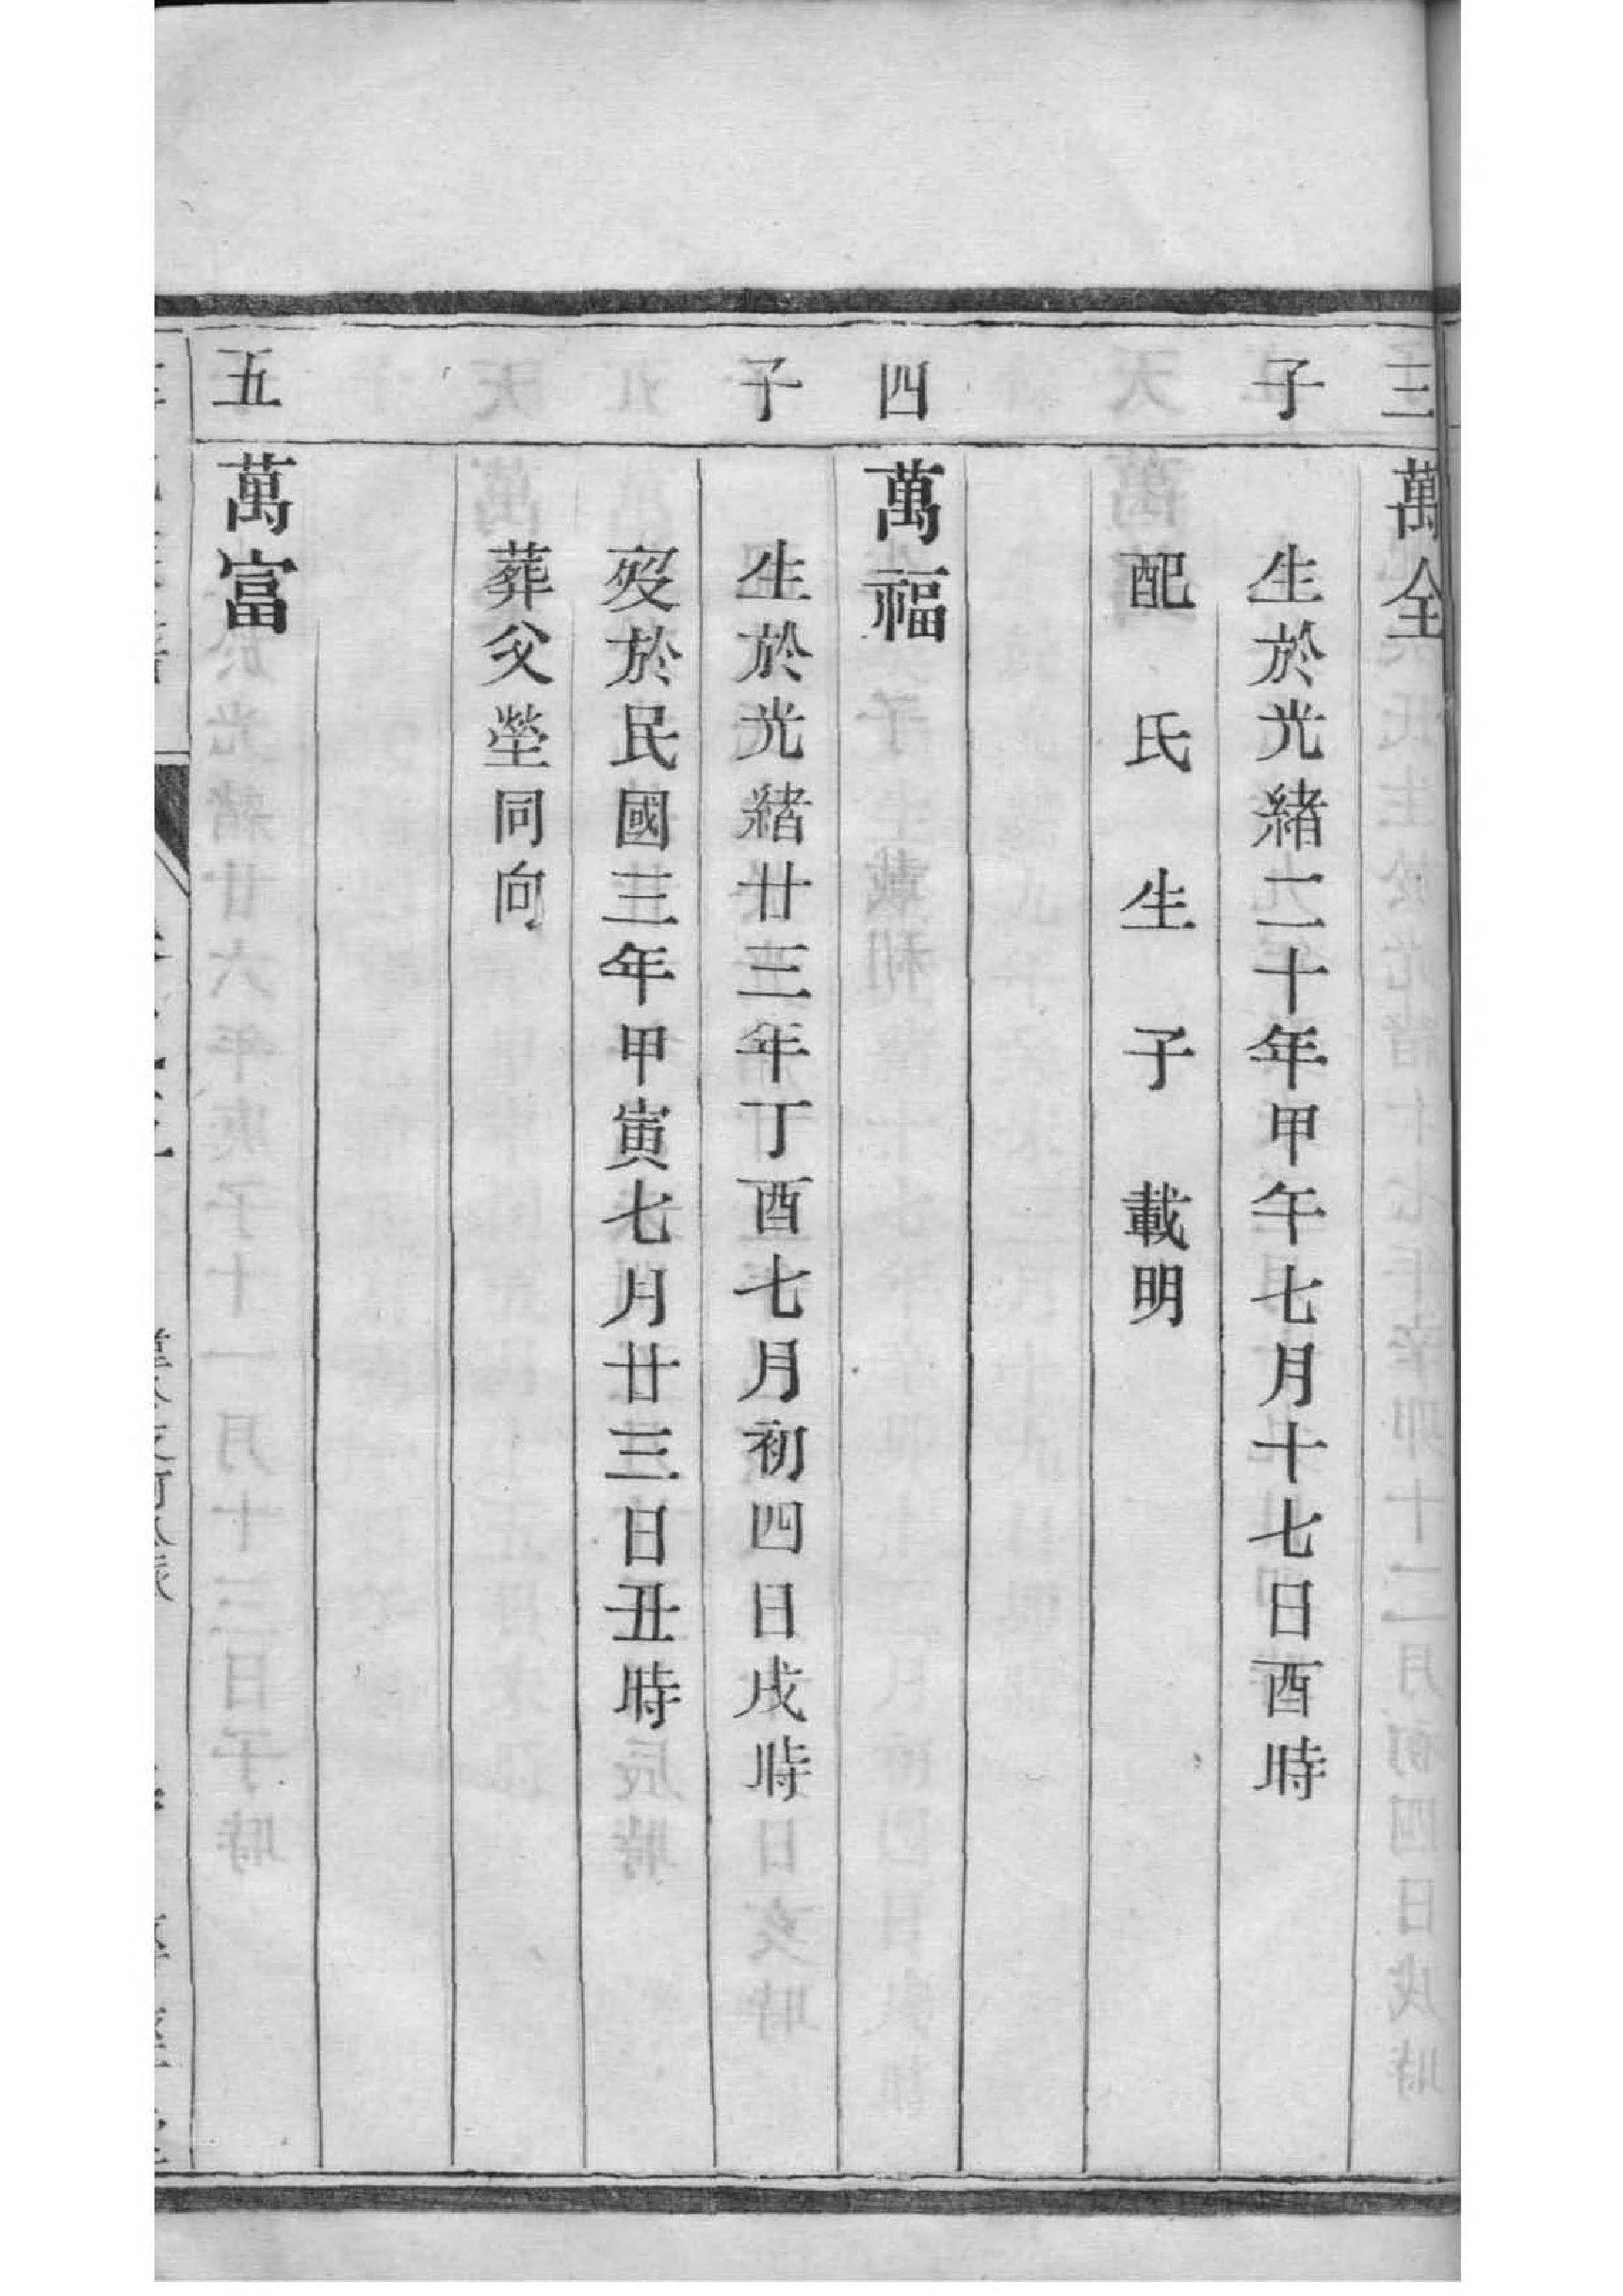 三
萬全
子
生於光緒二十年甲午七月十七日酉時
配　氏　生　子　載明
四
萬福
子
生於光緒廿三年丁酉七月初四日戌時
歿於民國三年甲寅七月廿三日丑時
葬父塋同向
五
萬富